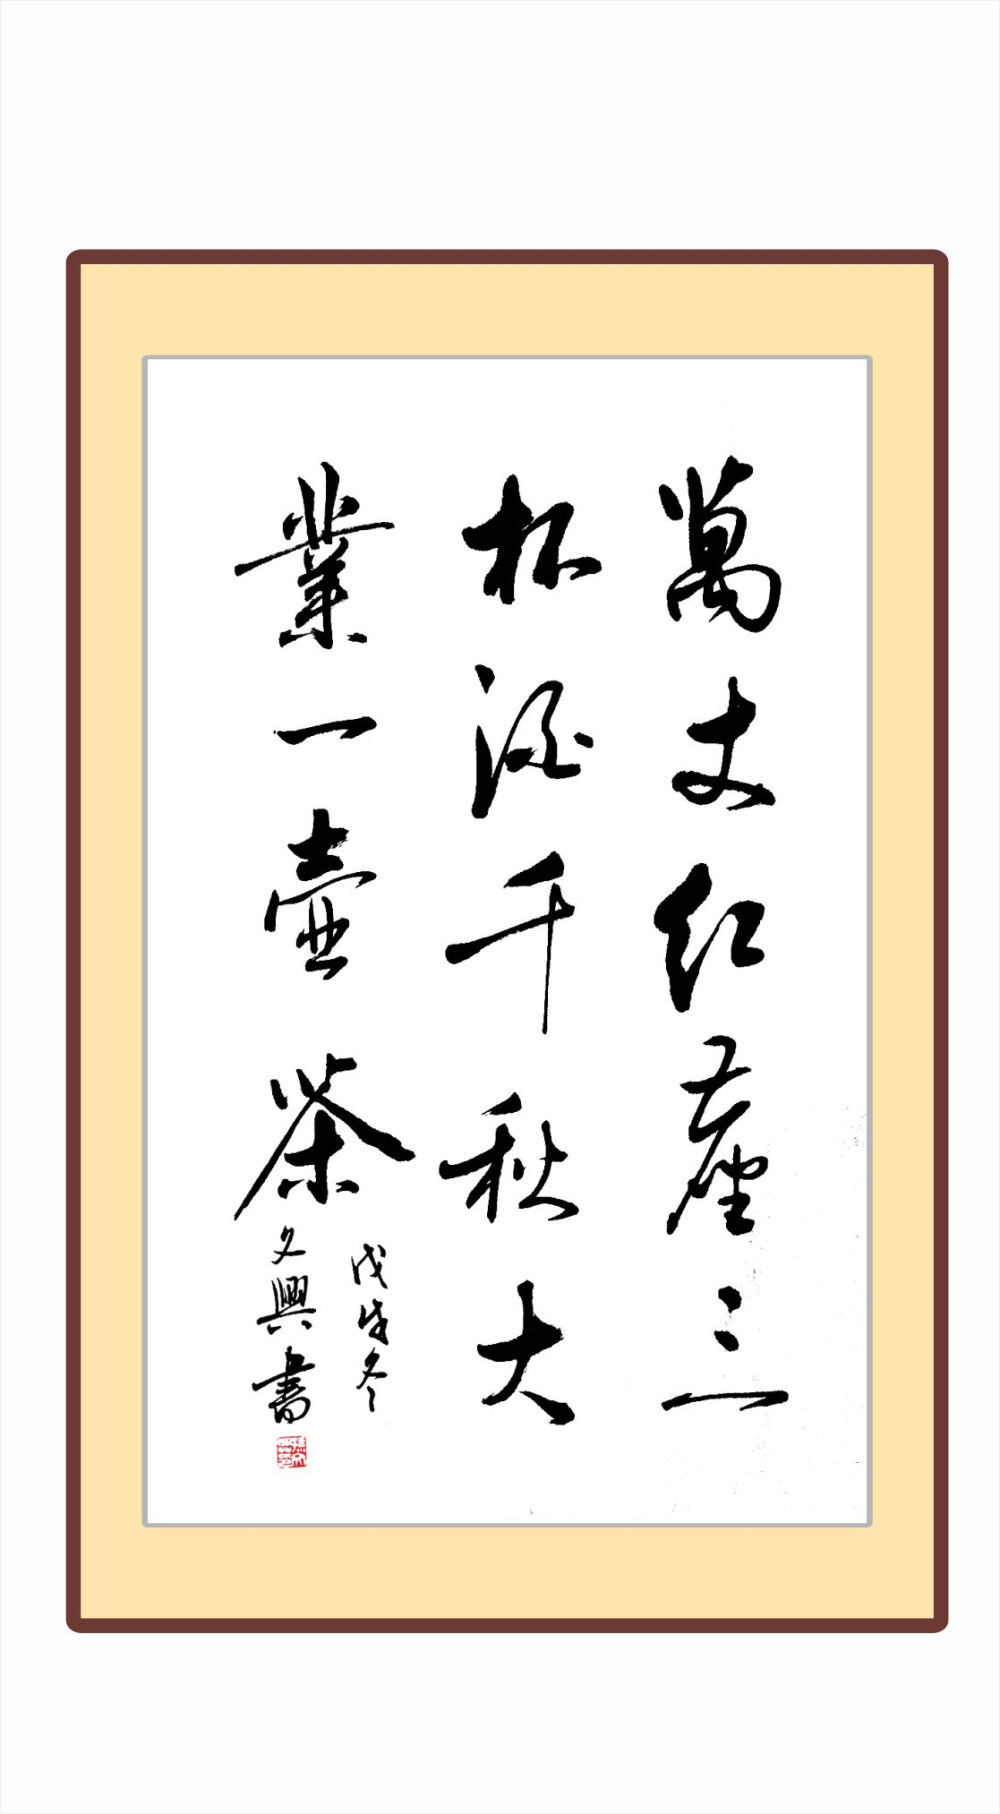 萬丈红塵三
杯酒千秋大
業一壺茶
戊戌冬
文興書